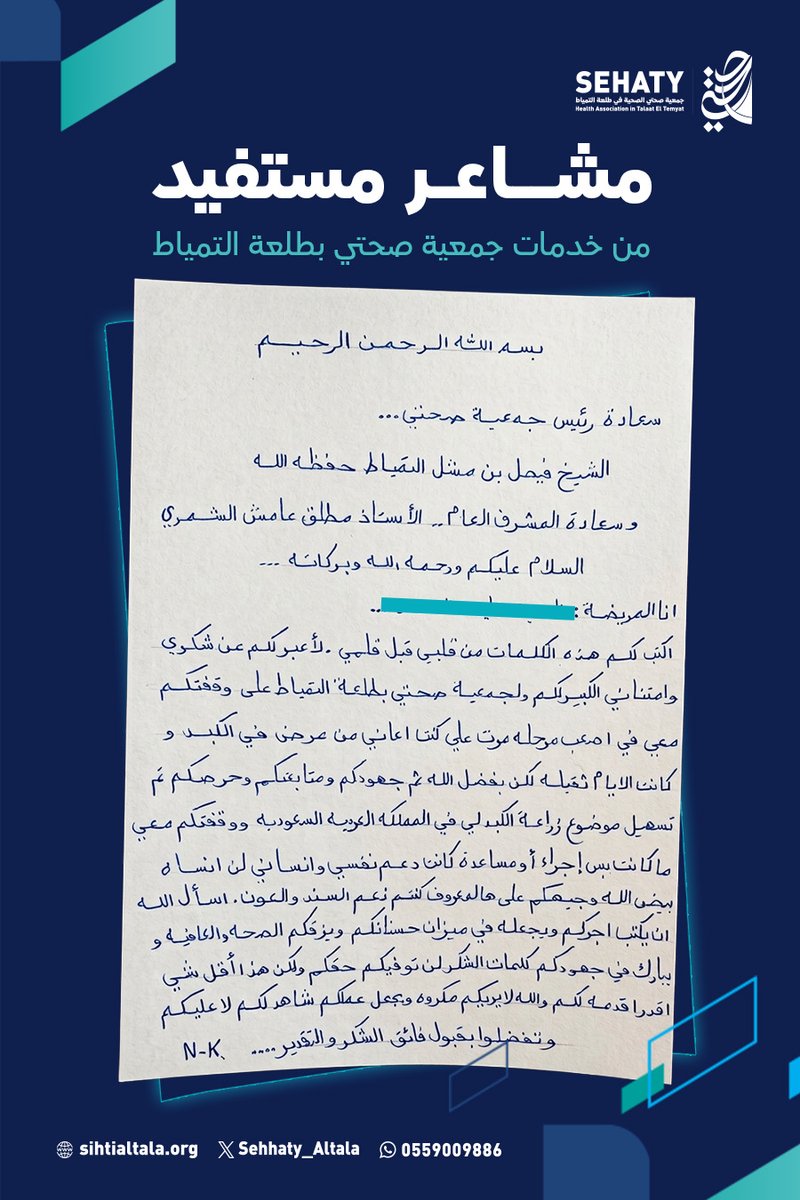 SEHATY
جمعية صحتي الصحية في طلعة التمياط
Health Association in Talaat El Temyat
مشاعر مستفيد
من خدمات جمعية صحتي بطلعة التمياط
بسم الله الرحمن الرحيم
سعادة رئيس جمعية صحتي...
الشيخ فيصل بن مشل التمياط حفظه الله
وسعادة المشرف العام .. الأستاذ مطلق عامش الشمري
السلام عليكم ورحمه الله وبركاته ...
انا المريضة :
اكتب لكم هذه الكلمات من قلبي قبل قلمي . لأعبر لكم عن شكري
وامتناني الكبير لكم ولجمعية صحتي بطلعة التمياط على وقفتكم
معي في اصعب مرحله مرت علي كنت اعاني من مرض في الكبد و
كانت الايام ثقيله لكن بفضل الله ثم جهودكم ومتابعتكم وحرصكم تم
تسهيل موضوع زراعة الكبد لي في المملكه العربيه السعوديه ووقفتكم معي
ما كانت بس إجراء أو مساعدة كانت دعم نفسي وانساني لن انساه
بيض الله وجيهكم على هالمعروف كنتم نعم السند والعون . اسأل الله
ان يكتب اجركم ويجعله في ميزان حسناتكم ويرزقكم الصحه والعافيه و
يبارك في جهودكم كلمات الشكر لن توفيكم حقكم ولكن هذا أقل شي
اقدر اقدمه لكم والله لا يريكم مكروه ويجعل عملكم شاهد لكم لا عليكم
وتفضلوا بقبول فائق الشكر والتقدير .... N-K
sihtialtala.org
Sehhaty_Altala
0559009886